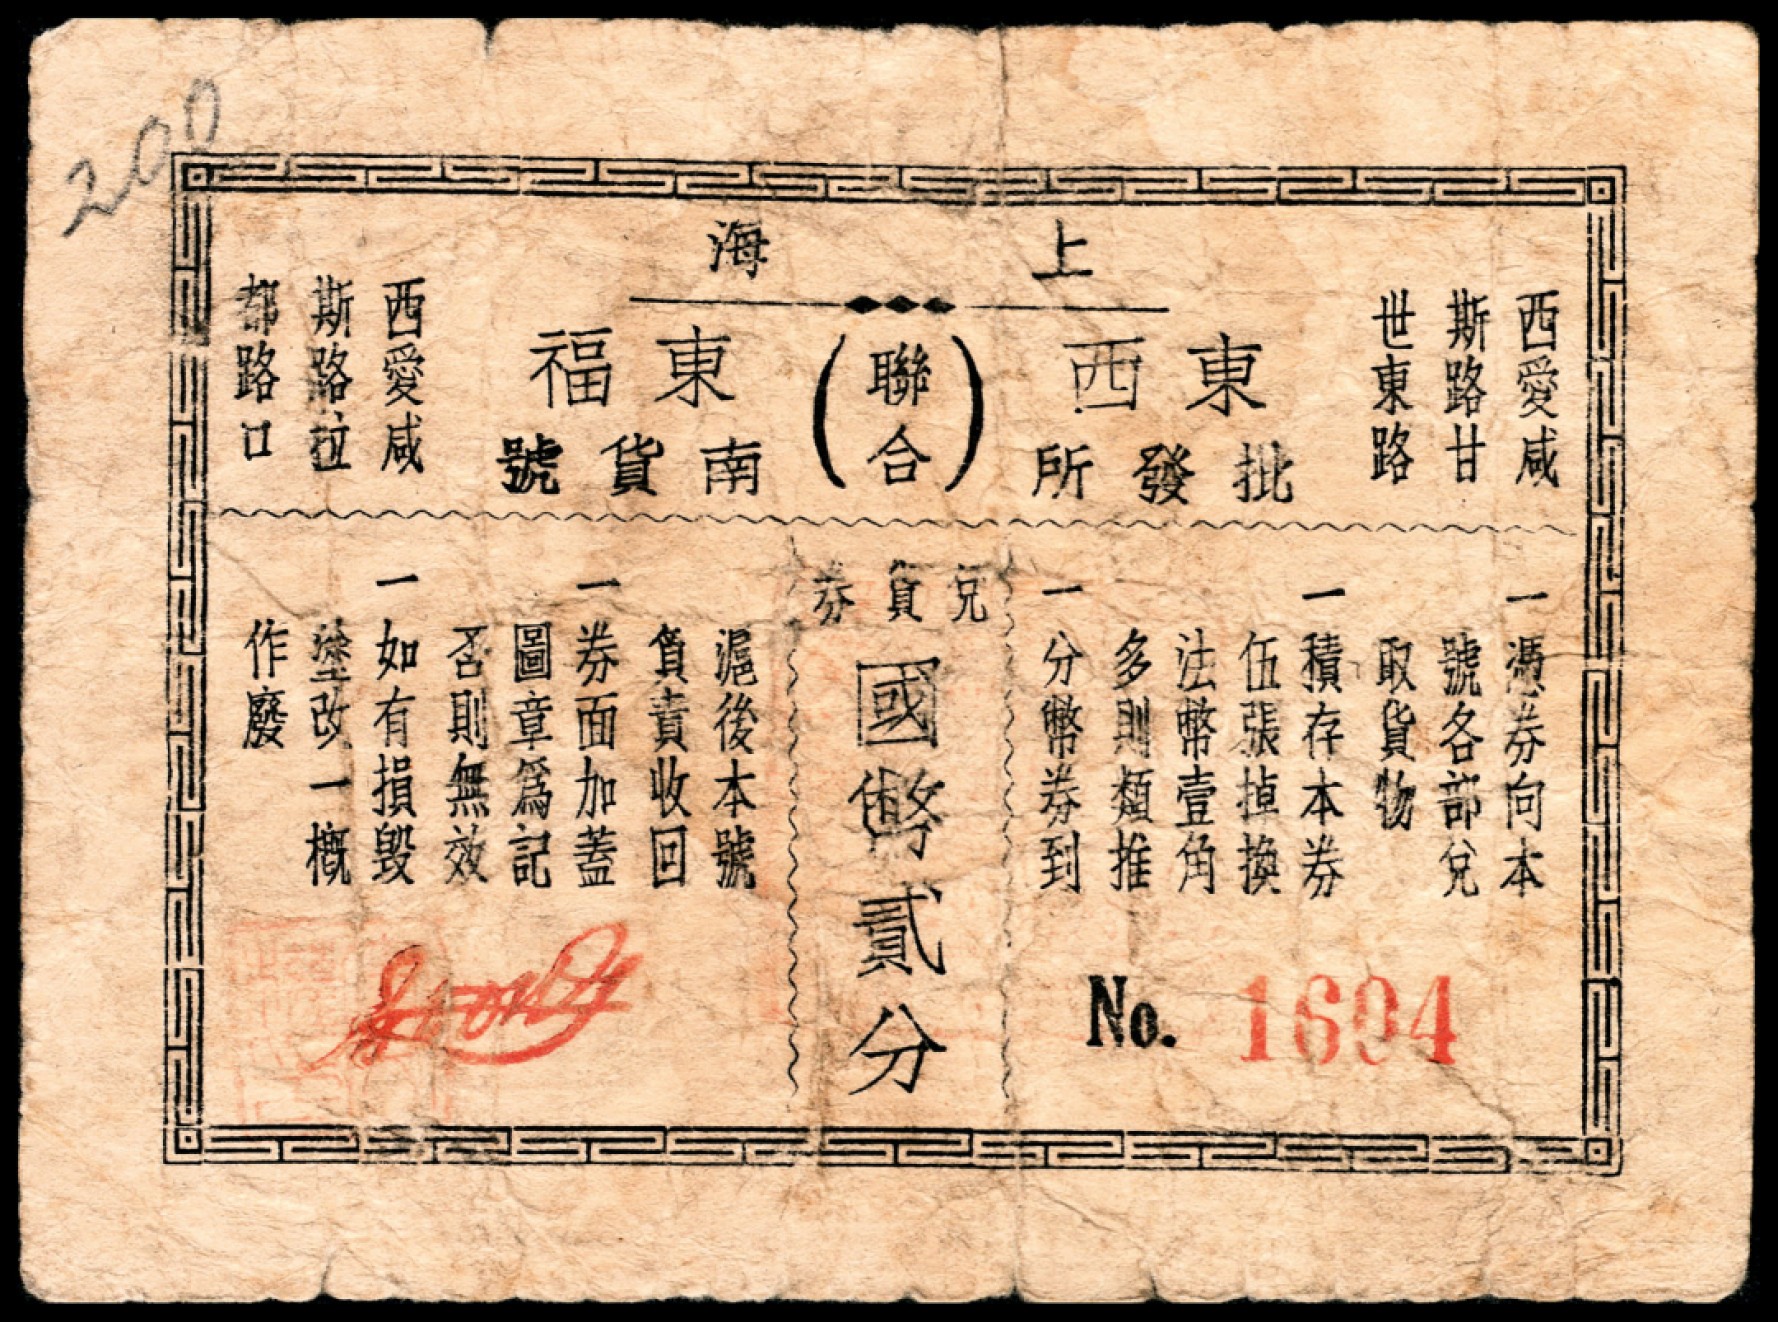 200
上海
西愛咸
斯路甘
世東路
東西
批發所
（聯合）
東福
南貨號
西愛咸
斯路拉
都路口
一憑券向本
號各部兌
取貨物
一積存本券
伍張掉換
法幣壹角
多則類推
一分幣券到
兌貨券
國幣貳分
滬後本號
負責收回
一券面加蓋
圖章為記
否則無效
一如有損毀
塗改一概
作廢
No. 1694